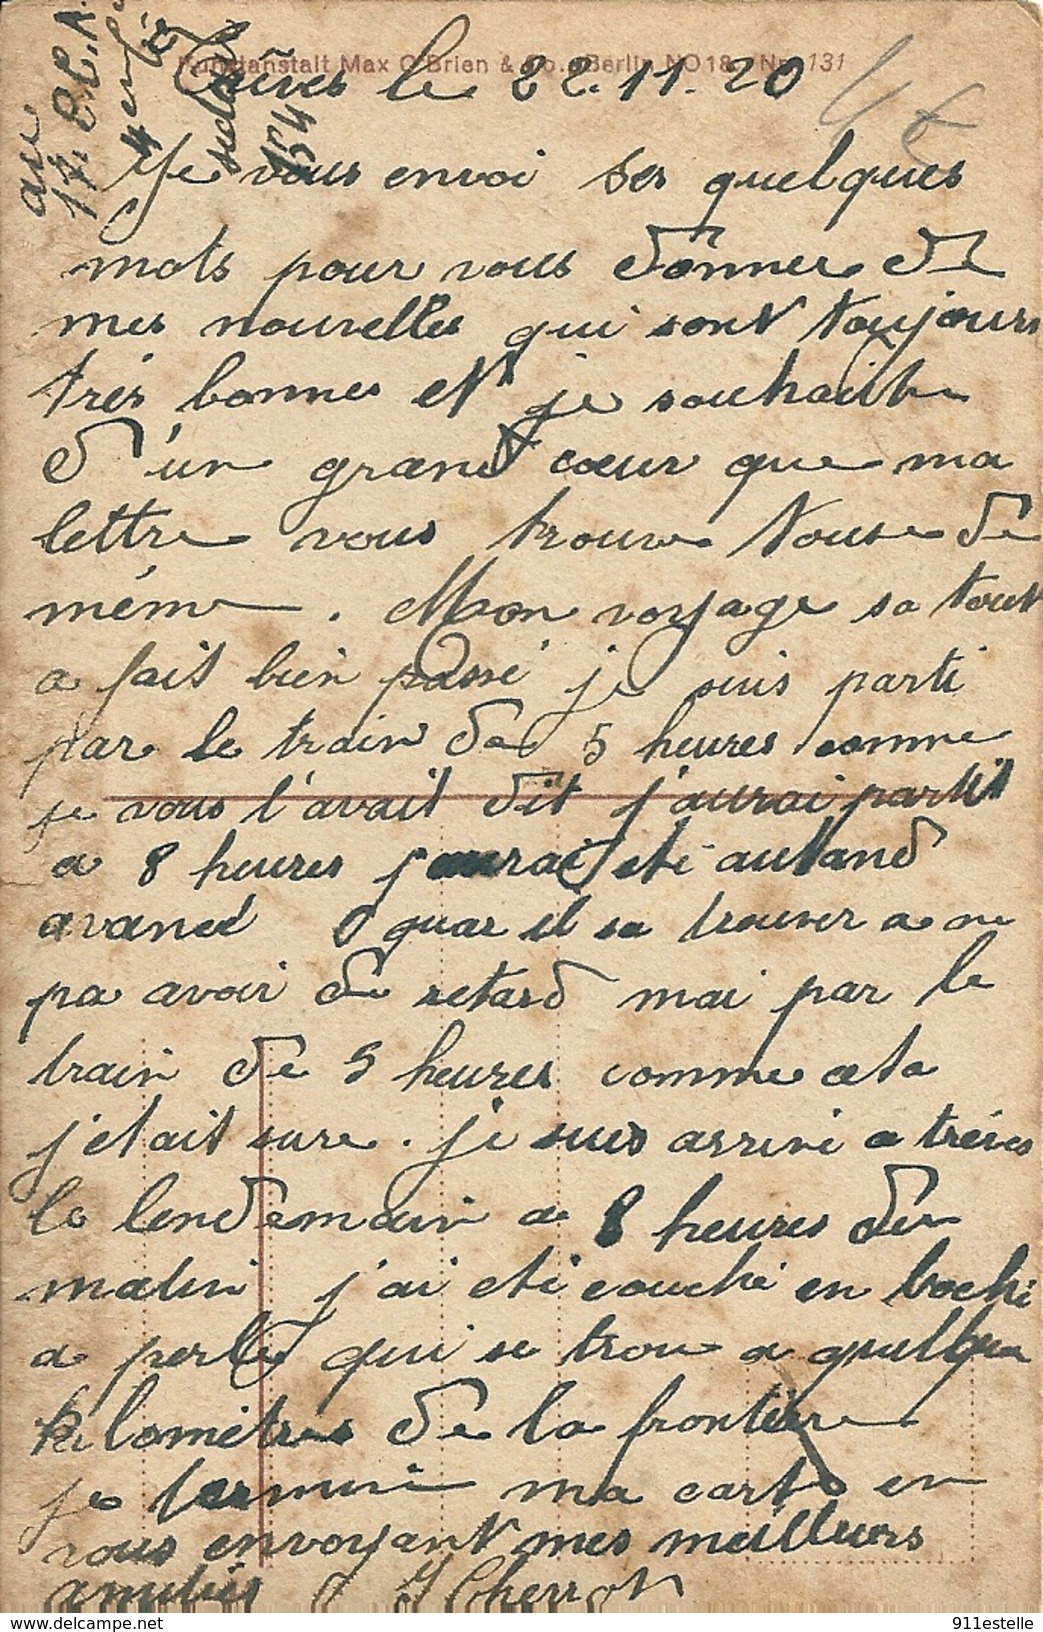 Kunstanstalt Max O'Brien & Co. Berlin NO18 Nr. 131
Trèves le 22.11.20
Je vous envoi ses quelques
mots pour vous donner de
mes nouvelles qui sont toujours
très bonnes et je souhaite
d'un grand cœur que ma
lettre vous trouve touse de
même. Mon voyage sa tout
a fait bien passé je suis parti
par le train de 5 heures comme
je vous l'avait dit j'aurai partit
a 8 heures j'aurai eté autand
avancé quar il sa trouver a ne
pa avoir de retard mai par le
train de 5 heures comme cela
j'etait sure. je suis arrivé a trèves
le lendemain a 8 heures du
matin j'ai eté couché en bochi
a perle qui se trou a quelque
kilomètres de la frontière
je termine ma carte en
vous envoyant mes meilleurs
amitiés Cherrot
au
17.
154
911estelle